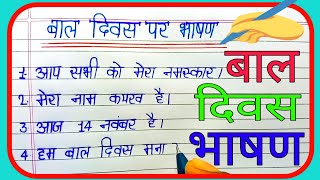 बाल दिवस पर भाषण
1. आप सभी को मेरा नमस्कार।
2. मेरा नाम कमरव है।
3. आज 14 नवंबर है।
4. हम बाल दिवस मना
बाल
दिवस
भाषण